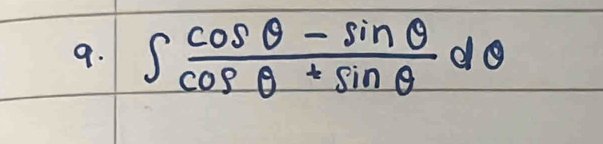 9. ∫ (cos θ - sin θ)/(cos θ + sin θ) dθ